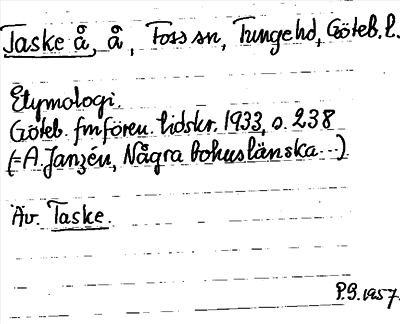 Taske å, å, Foss sn, Tunge hd, Göteb. l.
Etymologi.
Göteb. fmfören. tidskr. 1933, s. 238
(=A. Janzén, Några bohuslänska...)
Äv. Taske.
P.G. 1957.